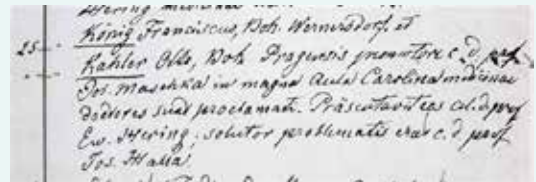 Hering
König Franciscus, Boh. Wernersdorf. et
25 Kahler Otto, Boh. Pragensis promotore c. d. prof
Jos. Maschka in magna Aula Carolina medicinae
doctores sunt proclamati. Präsentavit eos cl. d. prof
Ew. Hering, solutor problematis erat c. d. prof
Jos. Halla.